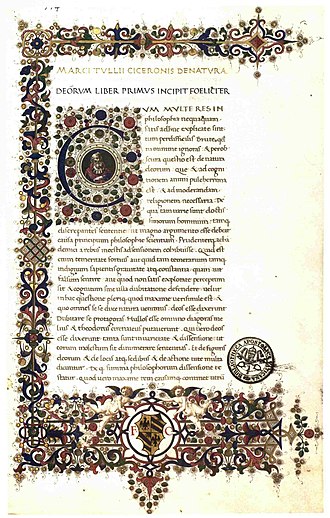 MARCI TULLII CICERONIS DE NATURA
DEORUM LIBER PRIMUS INCIPIT FOELICITER
CUM MULTE RES IN
philosophia nequaquam
satis adhuc explicate sint
tum perdifficilis Brute, qd
tu minime ignoras & perob
scura questio est de natura
deorum que & ad cog
nitionem animi pulcherrima
est & ad moderandam
religionem necessaria. De
qua tam varie sunt doctis
simorum hominum tamq
discrepantes sententie ut magno argumento esse debeat
causa principium philosophie scientiam. Prudenterq; acha
demia a rebus incertis assensionem cohibuisse. Quid est
enim temeritate fortius aut quid tam temerarium tamq;
indignum sapientis gravitate atq; constantia quam aut
falsum sentire aut quod non satis explorate perceptum
sit & cognitum sine ulla dubitatione defendere velut in
hac questione pleriq; quod maxime verisimile est &
quo omnes se se duce natura vehimus deos esse dixerunt
Dubitare se protagoras Nullos esse omnino diagoras me
lius & theodorus cirenaicus putaverunt. Qui vero deos
esse dixerunt tanta sunt in varietate & dissensione ut
eorum molestum sit dinumerare sententias. Et de figuris
deorum & de locis atq; sedibus & de actione vite multa
dicuntur De q; summa philosophorum dissensione cer
tatur quod vero maxime rem causamq; continet utrum